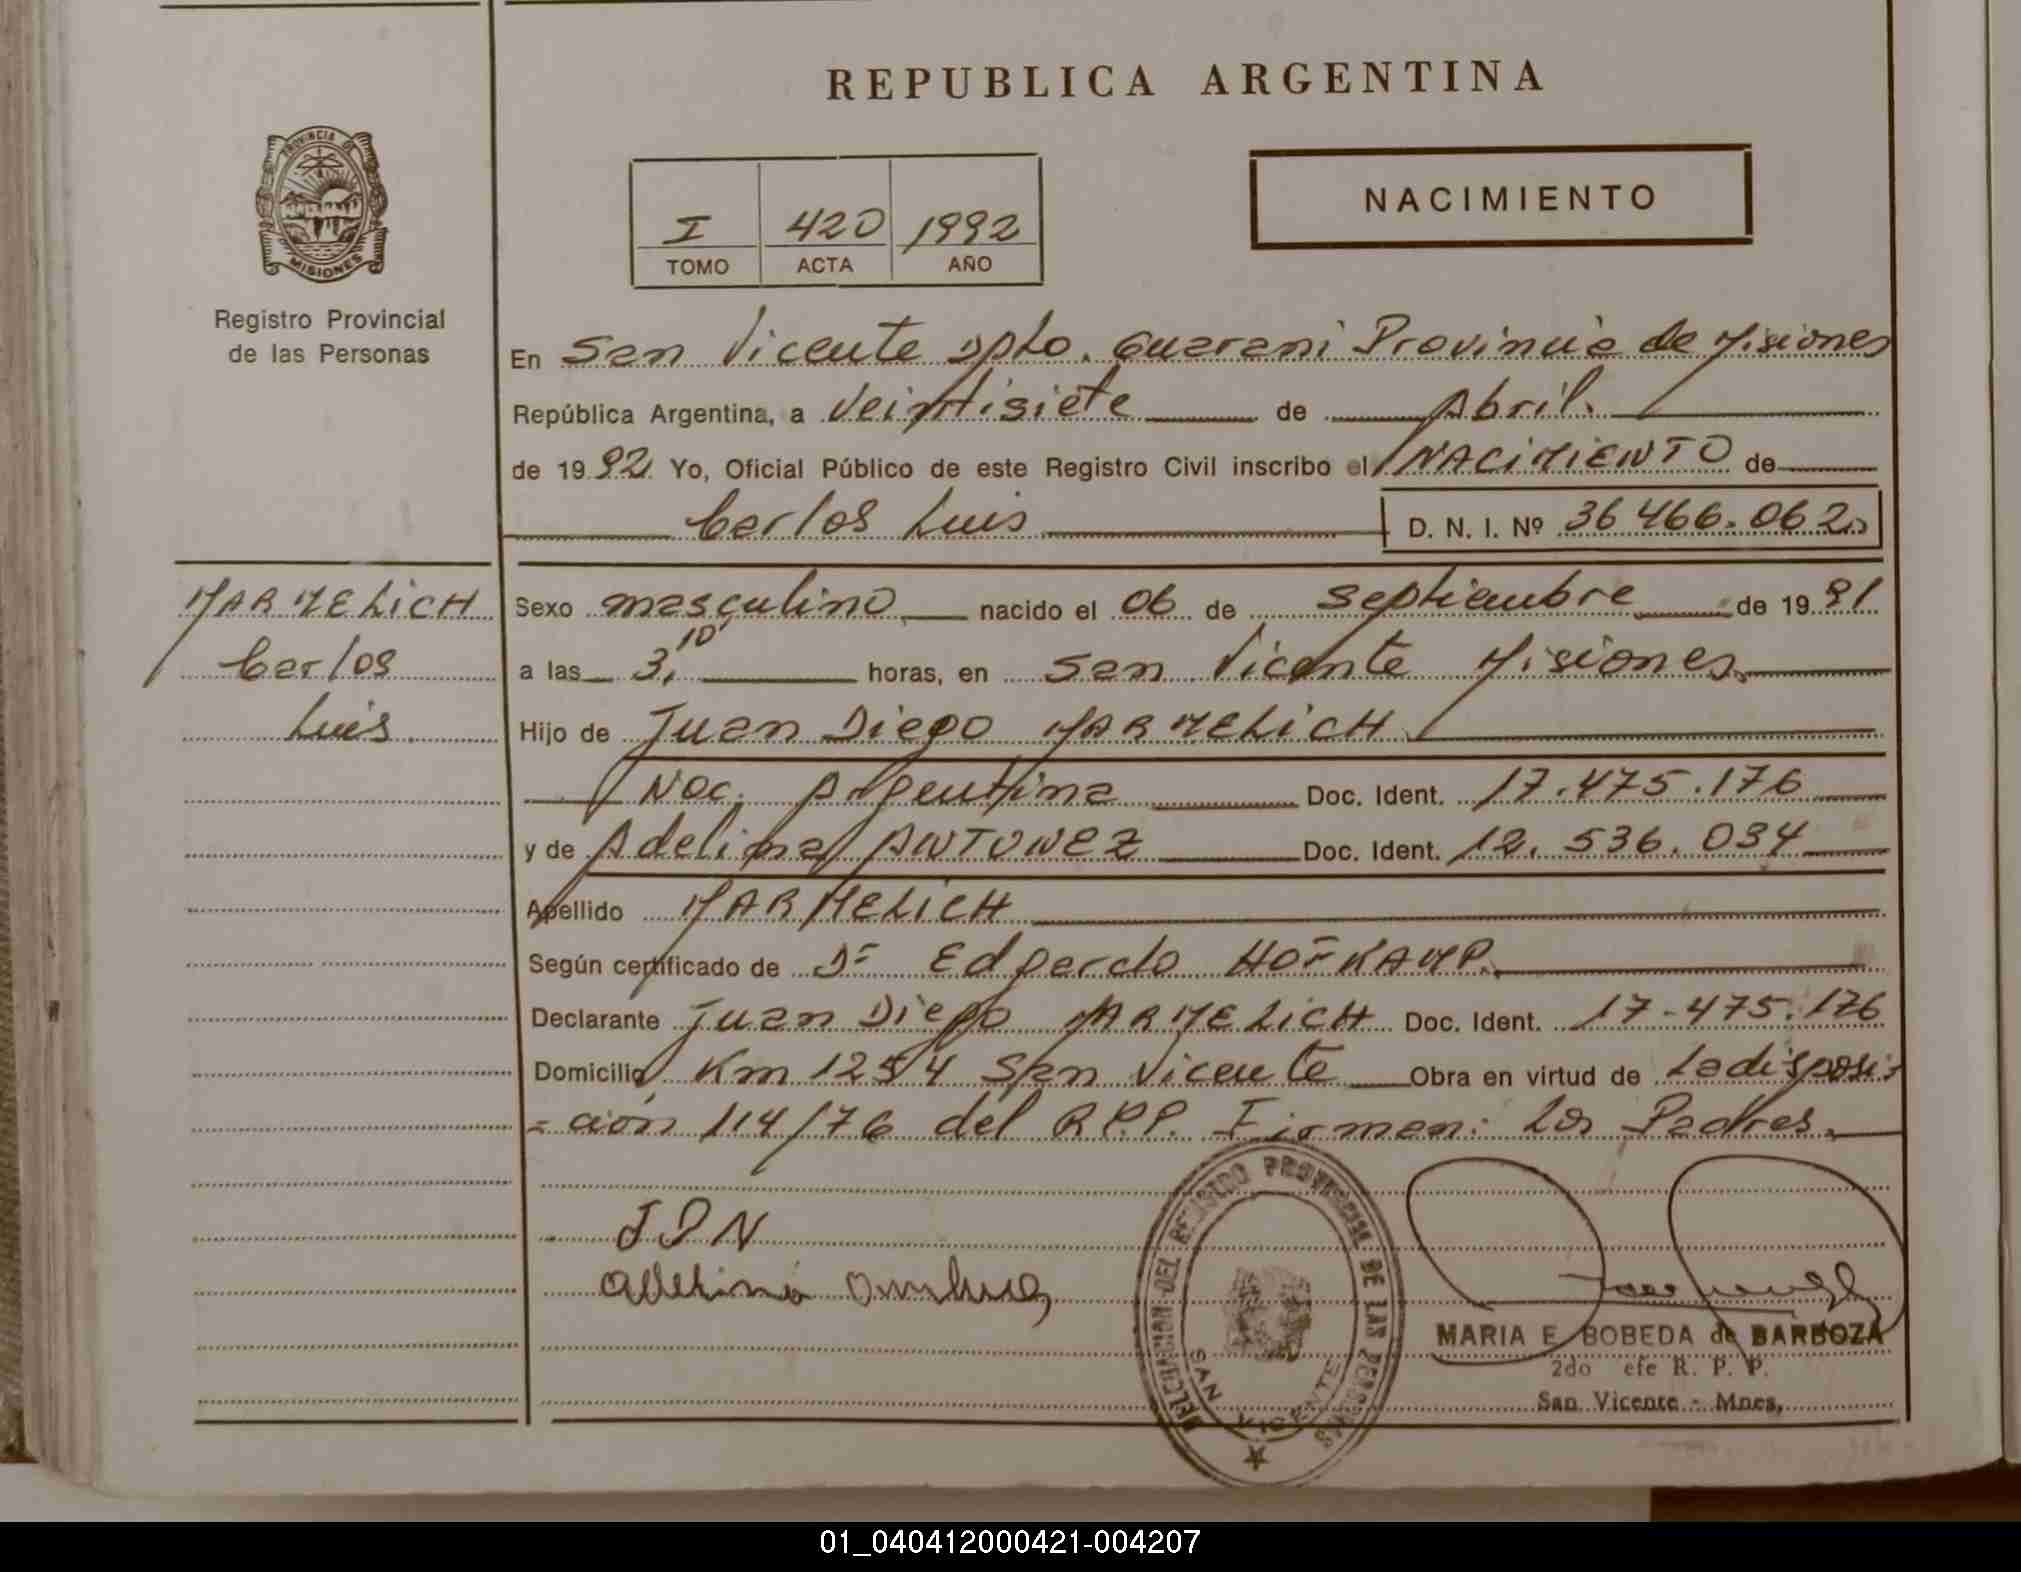 REPUBLICA ARGENTINA
PROVINCIA DE
MISIONES
Registro Provincial
de las Personas
NACIMIENTO
I 420 1992
TOMO ACTA AÑO
En San Vicente Dpto. Guarani Provincia de Misiones
República Argentina, a Veintisiete de Abril.
de 1992 Yo, Oficial Público de este Registro Civil inscribo el NACIMIENTO de
Carlos Luis D. N. I. Nº 36 466.062
MARMELICH
Carlos
Luis
Sexo masculino nacido el 06 de Septiembre de 1991
a las 3,10 horas, en San Vicente Misiones
Hijo de Juan Diego MARMELICH
Nac. Argentina Doc. Ident. 17.475.176
y de Adelina ANTUNEZ Doc. Ident. 12.536.034
Apellido MARMELICH
Según certificado de Dr Edgardo HOFKAMP.
Declarante Juan Diego MARMELICH Doc. Ident. 17-475.176
Domicilio Km 1254 San Vicente Obra en virtud de La disposi-
=ción 114/76 del R.P.P. Firman: Los Padres.
JDN
DELEGACION DEL REGISTRO PROVINCIAL DE LAS PERSONAS
SAN VICENTE
MARIA E BOBEDA de BARBOZA
2do efe R. P. P.
San Vicente - Mnes.
01_040412000421-004207